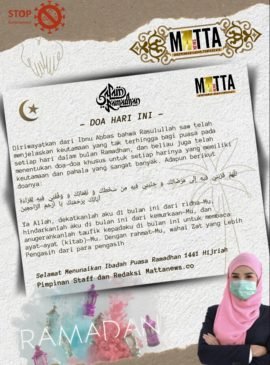 STOP
MATTA
MATTA
Ramadhan
- DOA HARI INI -
Diriwayatkan dari Ibnu Abbas bahwa Rasulullah saw telah
menjelaskan keutamaan yang tak terhingga bagi puasa pada
setiap hari dalam bulan Ramadhan, dan beliau juga telah
menentukan doa-doa khusus untuk setiap harinya yang memiliki
keutamaan dan pahala yang sangat banyak. Adapun berikut
doanya:
اللهم قربني فيه إلى مرضاتك و جنبني فيه من سخطك و نقماتك و وفقني فيه لقراءة
آياتك برحمتك يا أرحم الراحمين
Ya Allah, dekatkanlah aku di bulan ini dari ridha-Mu,
hindarkanlah aku di bulan ini dari kemurkaan-Mu, dan
anugerahkanlah taufik kepadaku di bulan ini untuk membaca
ayat-ayat (kitab)-Mu. Dengan rahmat-Mu, wahai Zat yang Lebih
Pengasih dari para pengasih
Selamat Menunaikan Ibadah Puasa Ramadhan 1441 Hijriah
Pimpinan Staff dan Redaksi Mattanews.co
RAMADAN